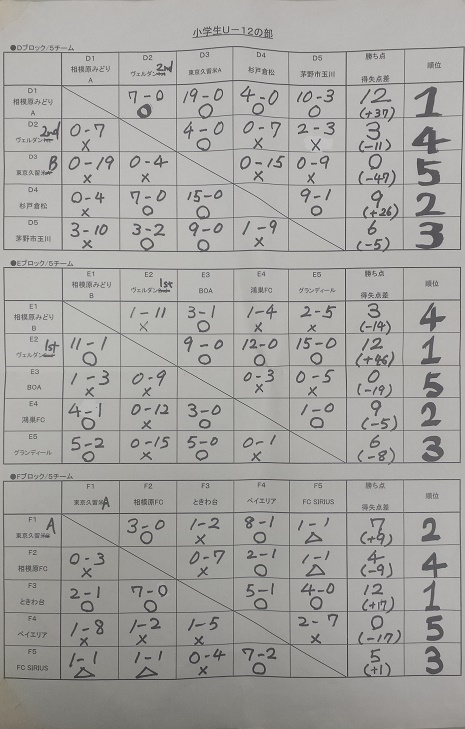 小学生U-12の部
●Dブロック/5チーム
D1 相模原みどり A D2 ヴェルダン 2nd D3 東京久留米A D4 杉戸倉松 D5 茅野市玉川 勝ち点 得失点差 順位
D1 相模原みどり A 7-0 ○ 19-0 ○ 4-0 ○ 10-3 ○ 12 (+37) 1
D2 ヴェルダン 2nd 0-7 × 4-0 ○ 0-7 × 2-3 × 3 (-11) 4
D3 東京久留米 B 0-19 × 0-4 × 0-15 × 0-9 × 0 (-47) 5
D4 杉戸倉松 0-4 × 7-0 ○ 15-0 ○ 9-1 ○ 9 (+26) 2
D5 茅野市玉川 3-10 × 3-2 ○ 9-0 ○ 1-9 × 6 (-5) 3
●Eブロック/5チーム
E1 相模原みどり B E2 ヴェルダン 1st E3 BOA E4 鴻巣FC E5 グランディール 勝ち点 得失点差 順位
E1 相模原みどり B 1-11 × 3-1 ○ 1-4 × 2-5 × 3 (-14) 4
E2 ヴェルダン 1st 11-1 ○ 9-0 ○ 12-0 ○ 15-0 ○ 12 (+46) 1
E3 BOA 1-3 × 0-9 × 0-3 × 0-5 × 0 (-19) 5
E4 鴻巣FC 4-1 ○ 0-12 × 3-0 ○ 1-0 ○ 9 (-5) 2
E5 グランディール 5-2 ○ 0-15 × 5-0 ○ 0-1 × 6 (-8) 3
●Fブロック/5チーム
F1 東京久留米 A F2 相模原FC F3 ときわ台 F4 ベイエリア F5 FC SIRIUS 勝ち点 得失点差 順位
F1 東京久留米 A 3-0 ○ 1-2 × 8-1 ○ 1-1 △ 7 (+9) 2
F2 相模原FC 0-3 × 0-7 × 2-1 ○ 1-1 △ 4 (-9) 4
F3 ときわ台 2-1 ○ 7-0 ○ 5-1 ○ 4-0 ○ 12 (+17) 1
F4 ベイエリア 1-8 × 1-2 × 1-5 × 2-7 × 0 (-17) 5
F5 FC SIRIUS 1-1 △ 1-1 △ 0-4 × 7-2 ○ 5 (+1) 3